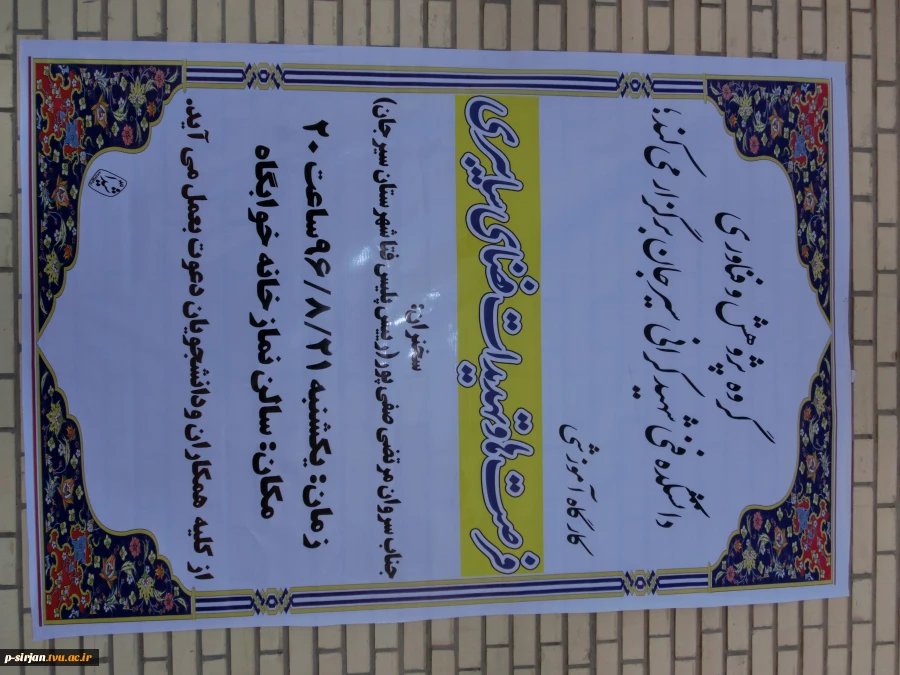 گروه پژوهش و فناوری
دانشکده فنی شهید کرانی سیرجان برگزار می کند؛
کارگاه آموزشی
فرصت ها و تهدیدات فضای سایبری
سخنران:
جناب سروان مرتضی صفی پور(رییس پلیس فتا شهرستان سیرجان)
زمان: یکشنبه ۹۶/۸/۲۱ ساعت ۲۰
مکان: سالن نمازخانه خوابگاه
از کلیه همکاران و دانشجویان دعوت بعمل می آید.
p-sirjan.tvu.ac.ir